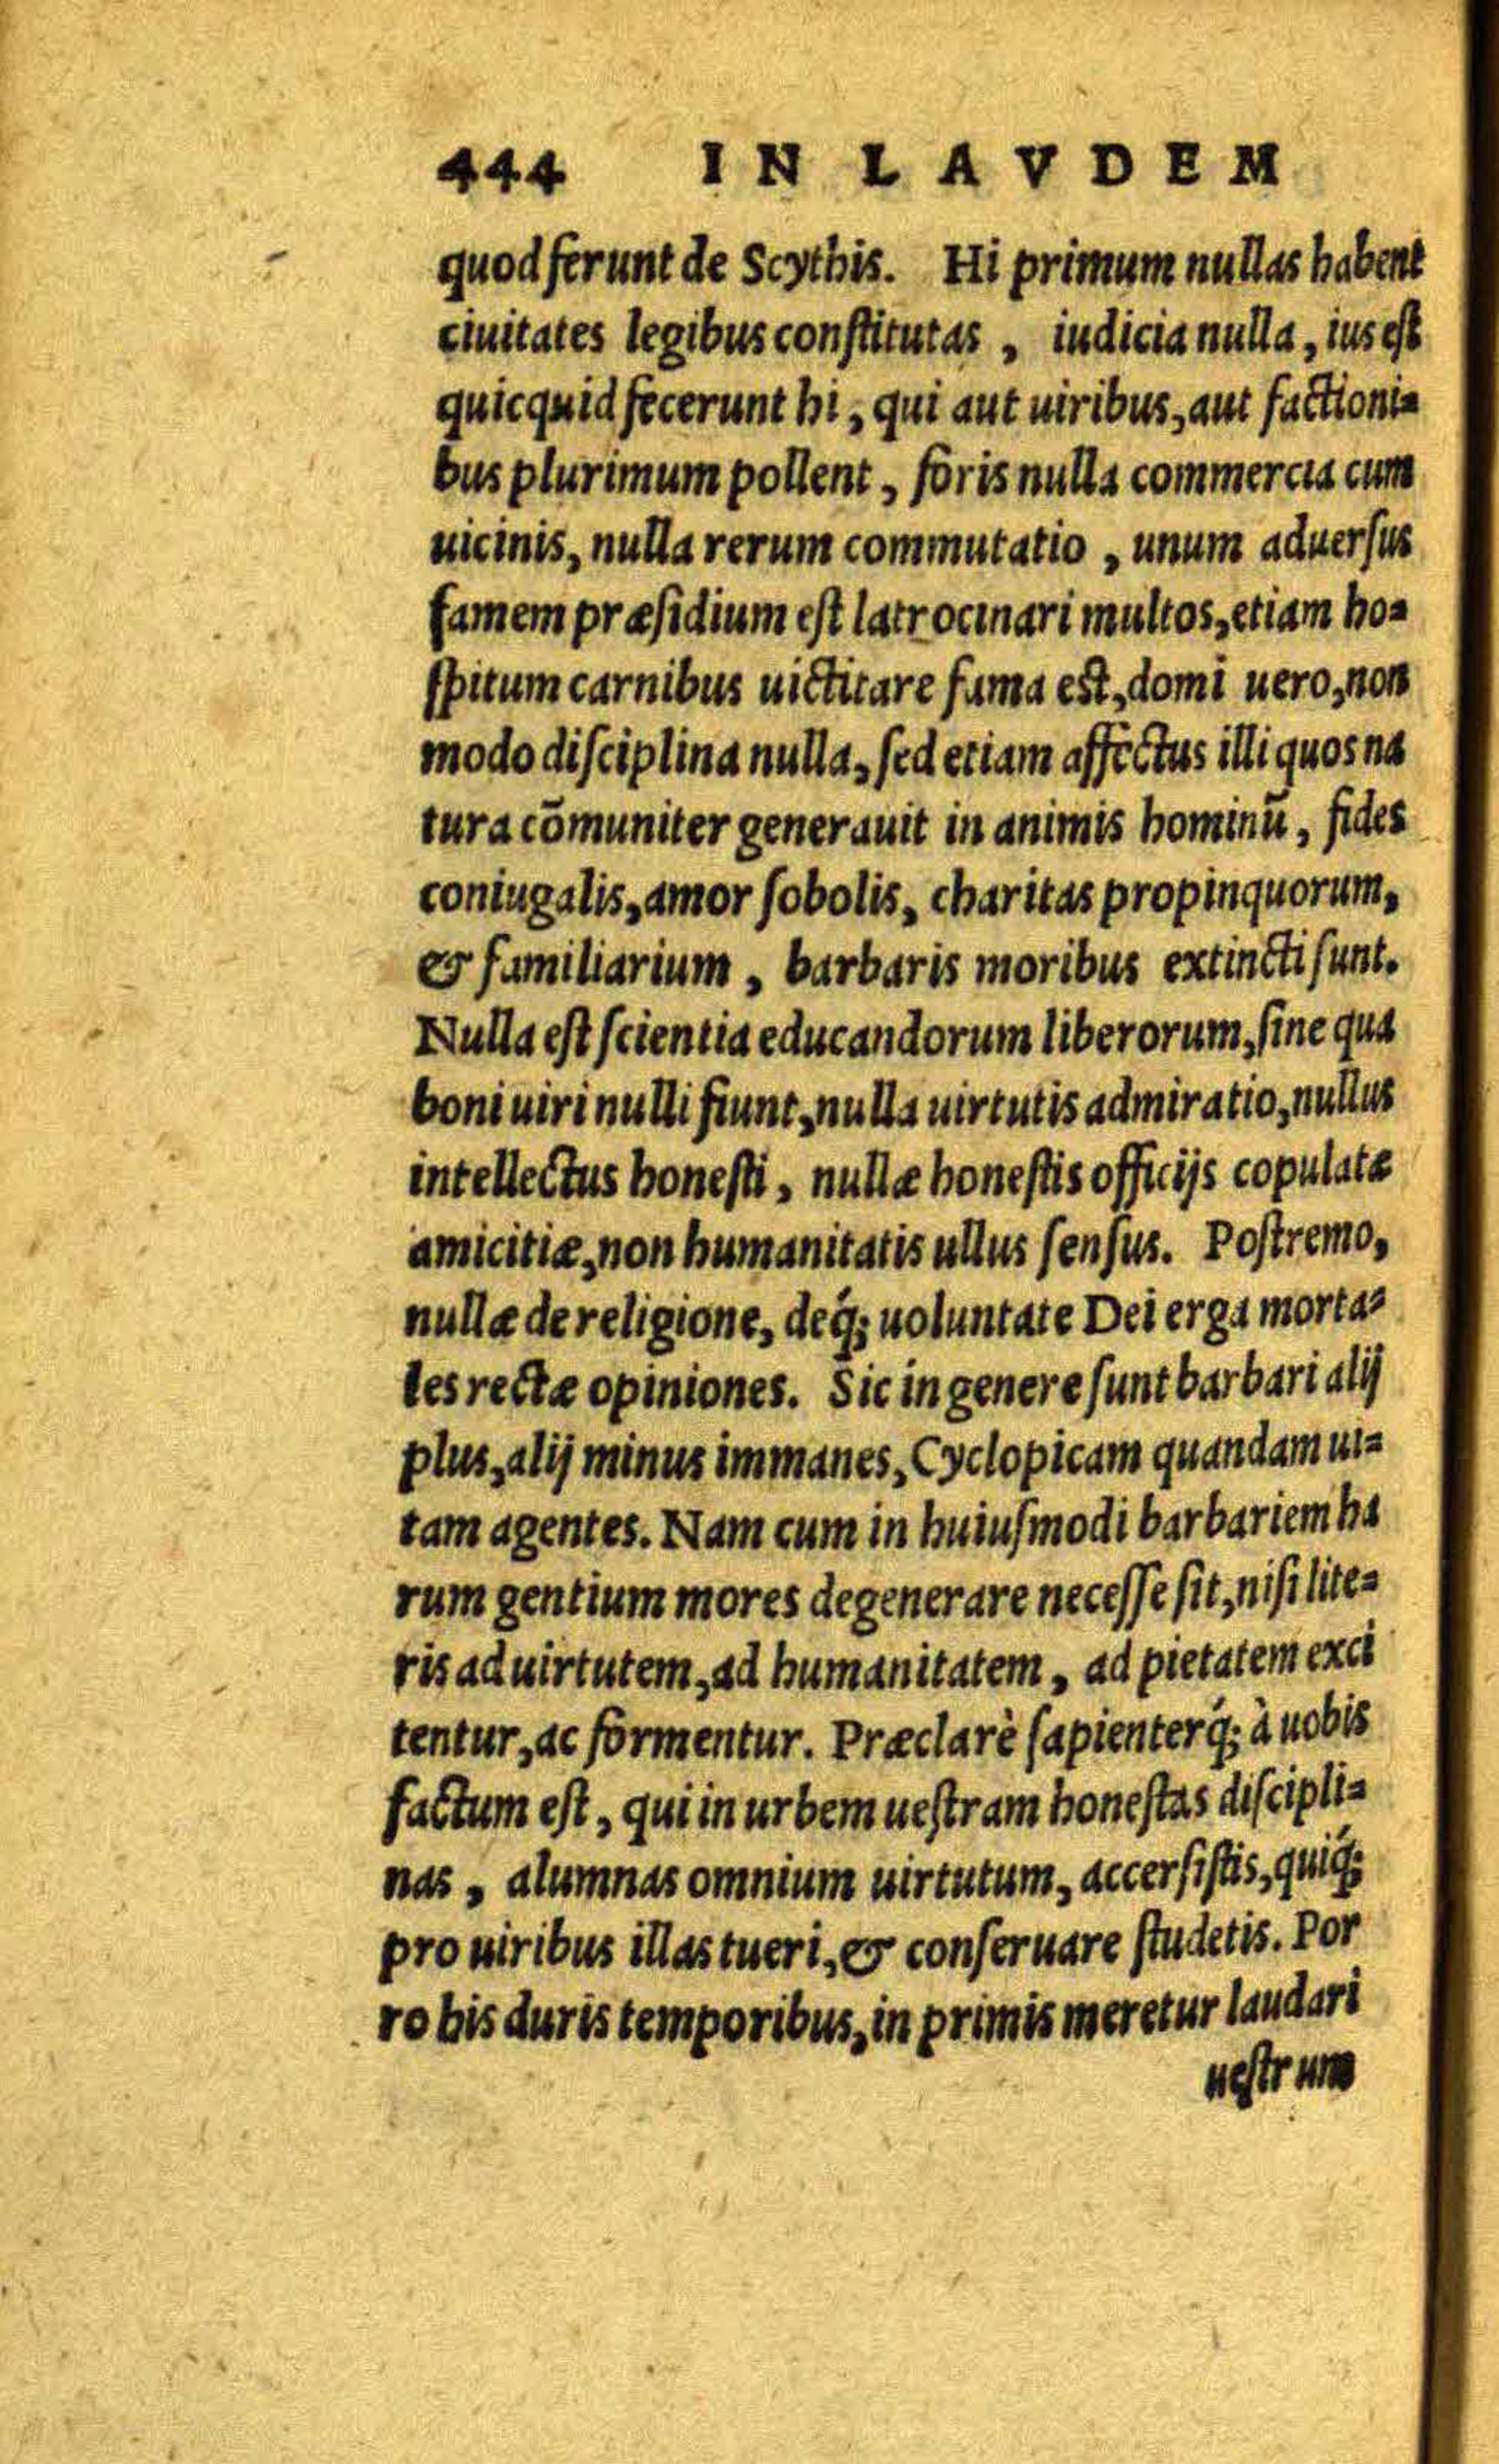 444 IN LAVDEM
quod ferunt de Scythis. Hi primum nullas habent
ciuitates legibus conſtitutas, iudicia nulla, ius eſt
quicquid fecerunt hi, qui aut uiribus, aut factioni=
bus plurimum pollent, foris nulla commercia cum
uicinis, nulla rerum commutatio, unum aduerſus
famem præſidium eſt latrocinari multos, etiam ho=
ſpitum carnibus uictitare fama eſt, domi uero, non
modo diſciplina nulla, ſed etiam affectus illi quos na
tura cōmuniter generauit in animis hominū, fides
coniugalis, amor ſobolis, charitas propinquorum,
& familiarium, barbaris moribus extincti ſunt.
Nulla eſt ſcientia educandorum liberorum, ſine qua
boni uiri nulli fiunt, nulla uirtutis admiratio, nullus
intellectus honeſti, nullæ honeſtis officijs copulatæ
amicitiæ, non humanitatis ullus ſenſus. Poſtremo,
nullæ de religione, deq́; uoluntate Dei erga morta=
les rectæ opiniones. Sic in genere ſunt barbari alij
plus, alij minus immanes, Cyclopicam quandam ui=
tam agentes. Nam cum in huiuſmodi barbariem ha
rum gentium mores degenerare neceſſe ſit, niſi lite=
ris ad uirtutem, ad humanitatem, ad pietatem exci
tentur, ac formentur. Præclarè ſapienterq́; à uobis
factum eſt, qui in urbem ueſtram honeſtas diſcipli=
nas, alumnas omnium uirtutum, accerſiſtis, quiq́;
pro uiribus illas tueri, & conſeruare ſtudetis. Por
ro his duris temporibus, in primis meretur laudari
ueſtrum